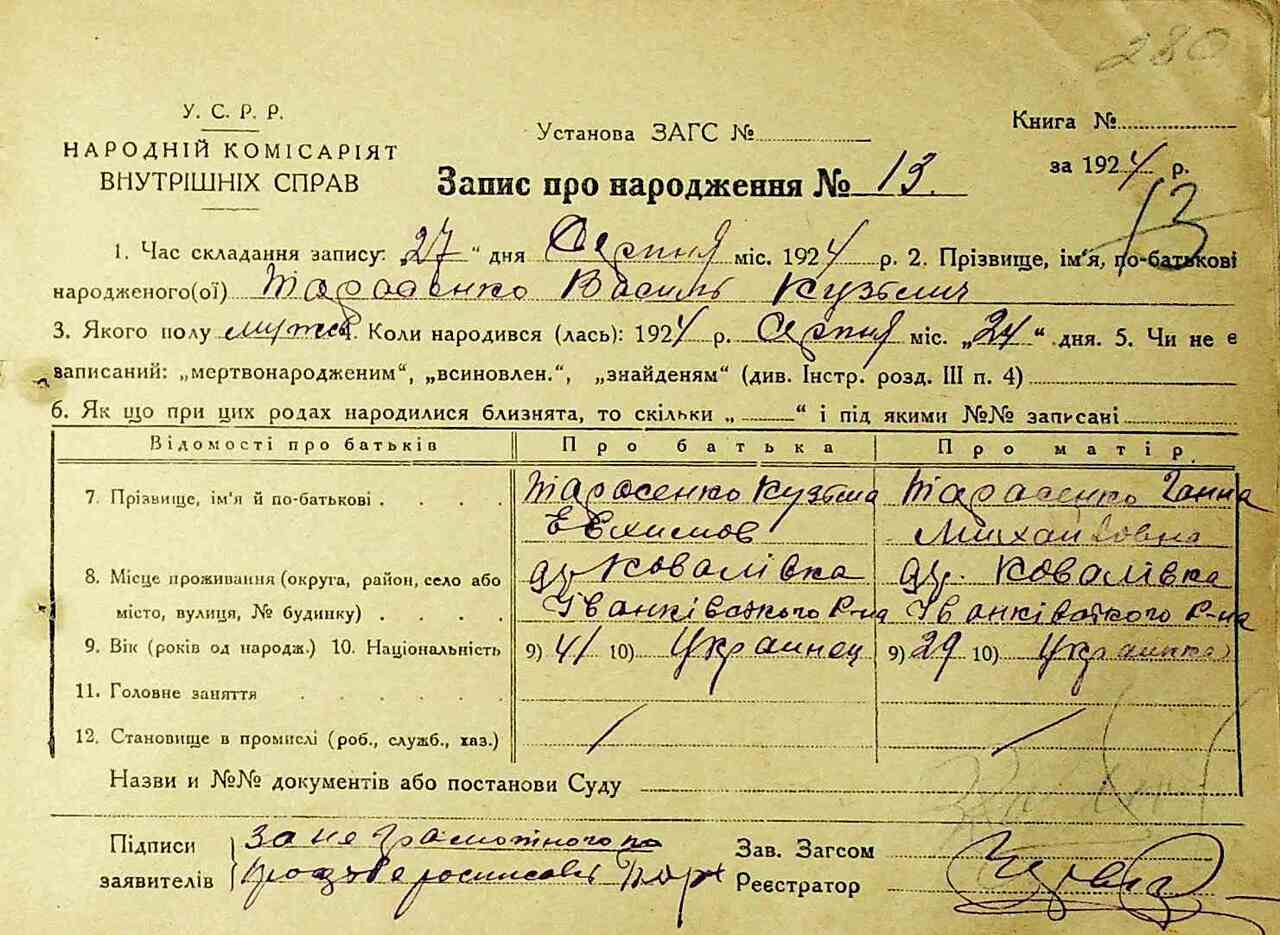 280
У. С. Р. Р.
НАРОДНІЙ КОМІСАРІЯТ
ВНУТРІШНІХ СПРАВ
Установа ЗАГС №
Книга №
за 1924 р.
Запис про народження № 13.
13
1. Час складання запису: „27“ дня Серпня міс. 1924 р. 2. Прізвище, ім'я, по-батькові
народженого(ої) Тарасенко Василь Кузьмич
3. Якого полу мужск. Коли народився (лась): 1924 р. Серпня міс. „24“ дня. 5. Чи не є
записаний: „мертвонародженим“, „всиновлен.“, „знайденям“ (див. Інстр. розд. III п. 4)
6. Як що при цих родах народилися близнята, то скільки „ “ і під якими №№ записані
Відомості про батьків Про батька Про матір
7. Прізвище, ім'я й по-батькові Тарасенко Кузьма Тарасенко Ганна
Евхимов Михайловна
8. Місце проживання (округа, район, село або Ковалівка Ковалівка
місто, вулиця, № будинку) Іванківського Р-на Іванківского Р-на
9. Вік (років од народж.) 10. Національність 9) 41 10) Украинец 9) 29 10) Украинка
11. Головне заняття
12. Становище в промислі (роб., служб., хаз.)
Назви и №№ документів або постанови Суду
Підписи За не грамотного по
заявителів
Зав. Загсом
Реєстратор